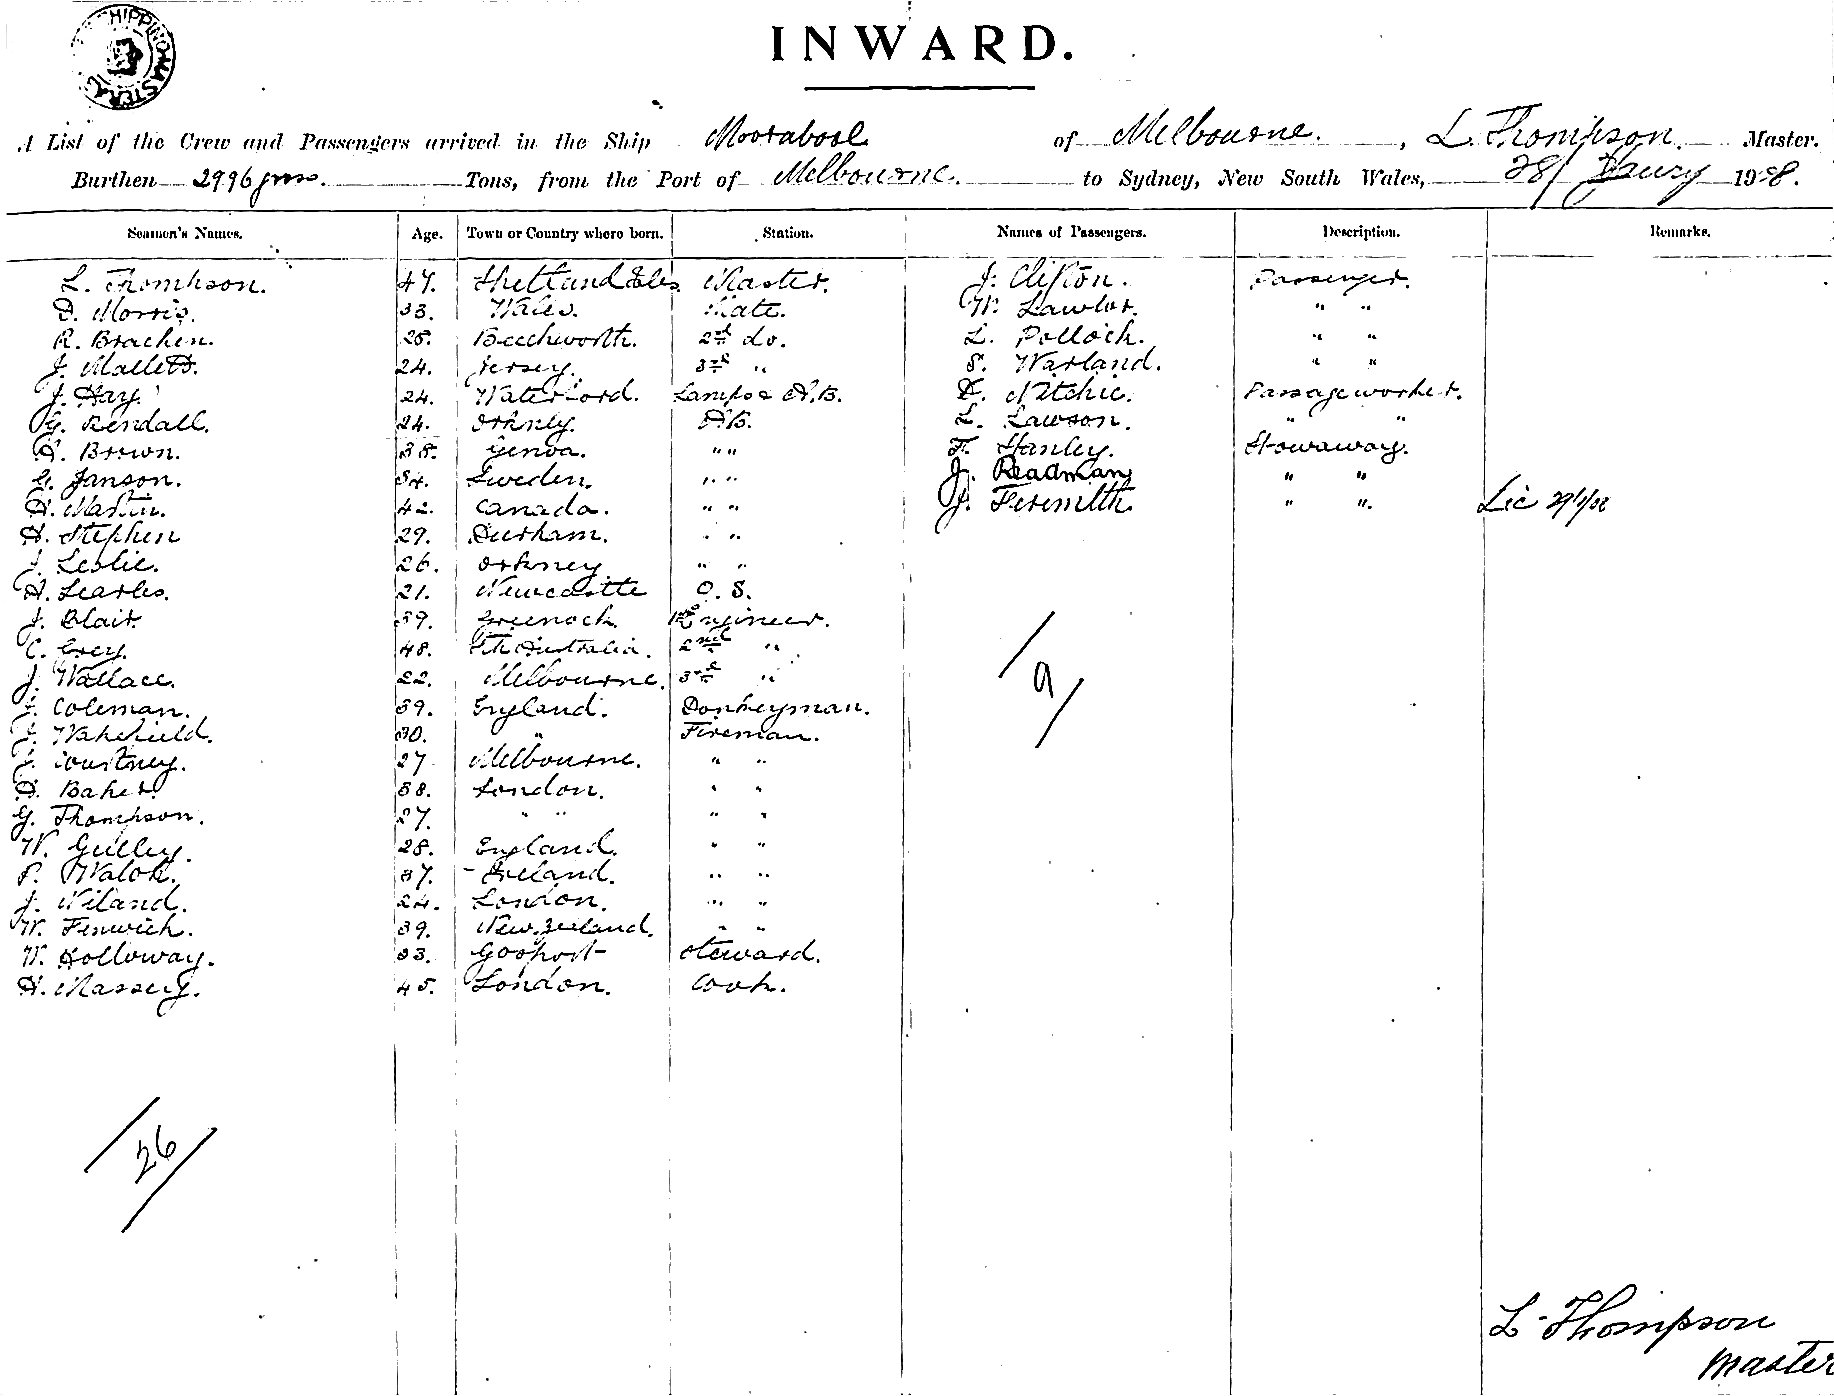 SHIPPING MASTER
INWARD.
A List of the Crew and Passengers arrived in the Ship Moorabool of Melbourne. , L. Thompson. Master.
Burthen 2996 grss. Tons, from the Port of Melbourne. to Sydney, New South Wales, 28/ Jaury 1908.
Seamen's Names. Age. Town or Country where born. Station. Names of Passengers. Description. Remarks.
L. Thompson. 47. Shetland Isles Master. J. Clifton. Passenger.
D. Morris. 33. Wales. Mate. W. Lawlor. " "
R. Bracken. 25. Beechworth. 2nd do. L. Pollock. " "
J. Mallett. 24. Jersey. 3rd " S. Warland. " "
J. Hay. 24. Waterford. Lamps & A.B. Ritchie. Passageworker.
G. Rendall. 24. Orkney. AB. L. Lawson. " "
A. Brown. 38. Genoa. " " F. Stanley. Stowaway.
G. Janson. 34. Sweden. " " J. Readman " "
H. Martin. 42. Canada. " " J. " " Lic 29/1/08
H. Stephen 29. Durham. " "
J. Leslie. 26. Orkney " "
A. Searles. 21. Newcastle O. S.
J. Blair. 39. Greenock 1st Engineer.
C. Grey. 48. Sth Australia. 2nd "
J. Wallace. 22. Melbourne. 3rd "
J. Coleman. 39. England. Donkeyman.
J. Wakefield. 30. " Fireman.
J. Courtney. 27 Melbourne. " "
A. Baker. 38. London. " "
G. Thompson. 27. " " " "
W. Gulley. 28. England. " "
P. Walsh. 37. Ireland. " "
J. Niland. 24. London. " "
W. Fenwick. 39. New Zealand. " "
W. Holloway. 33. Gosport Steward.
H. Massey. 45. London. Cook.
/ 9 /
/ 26 /
L. Thompson
Master